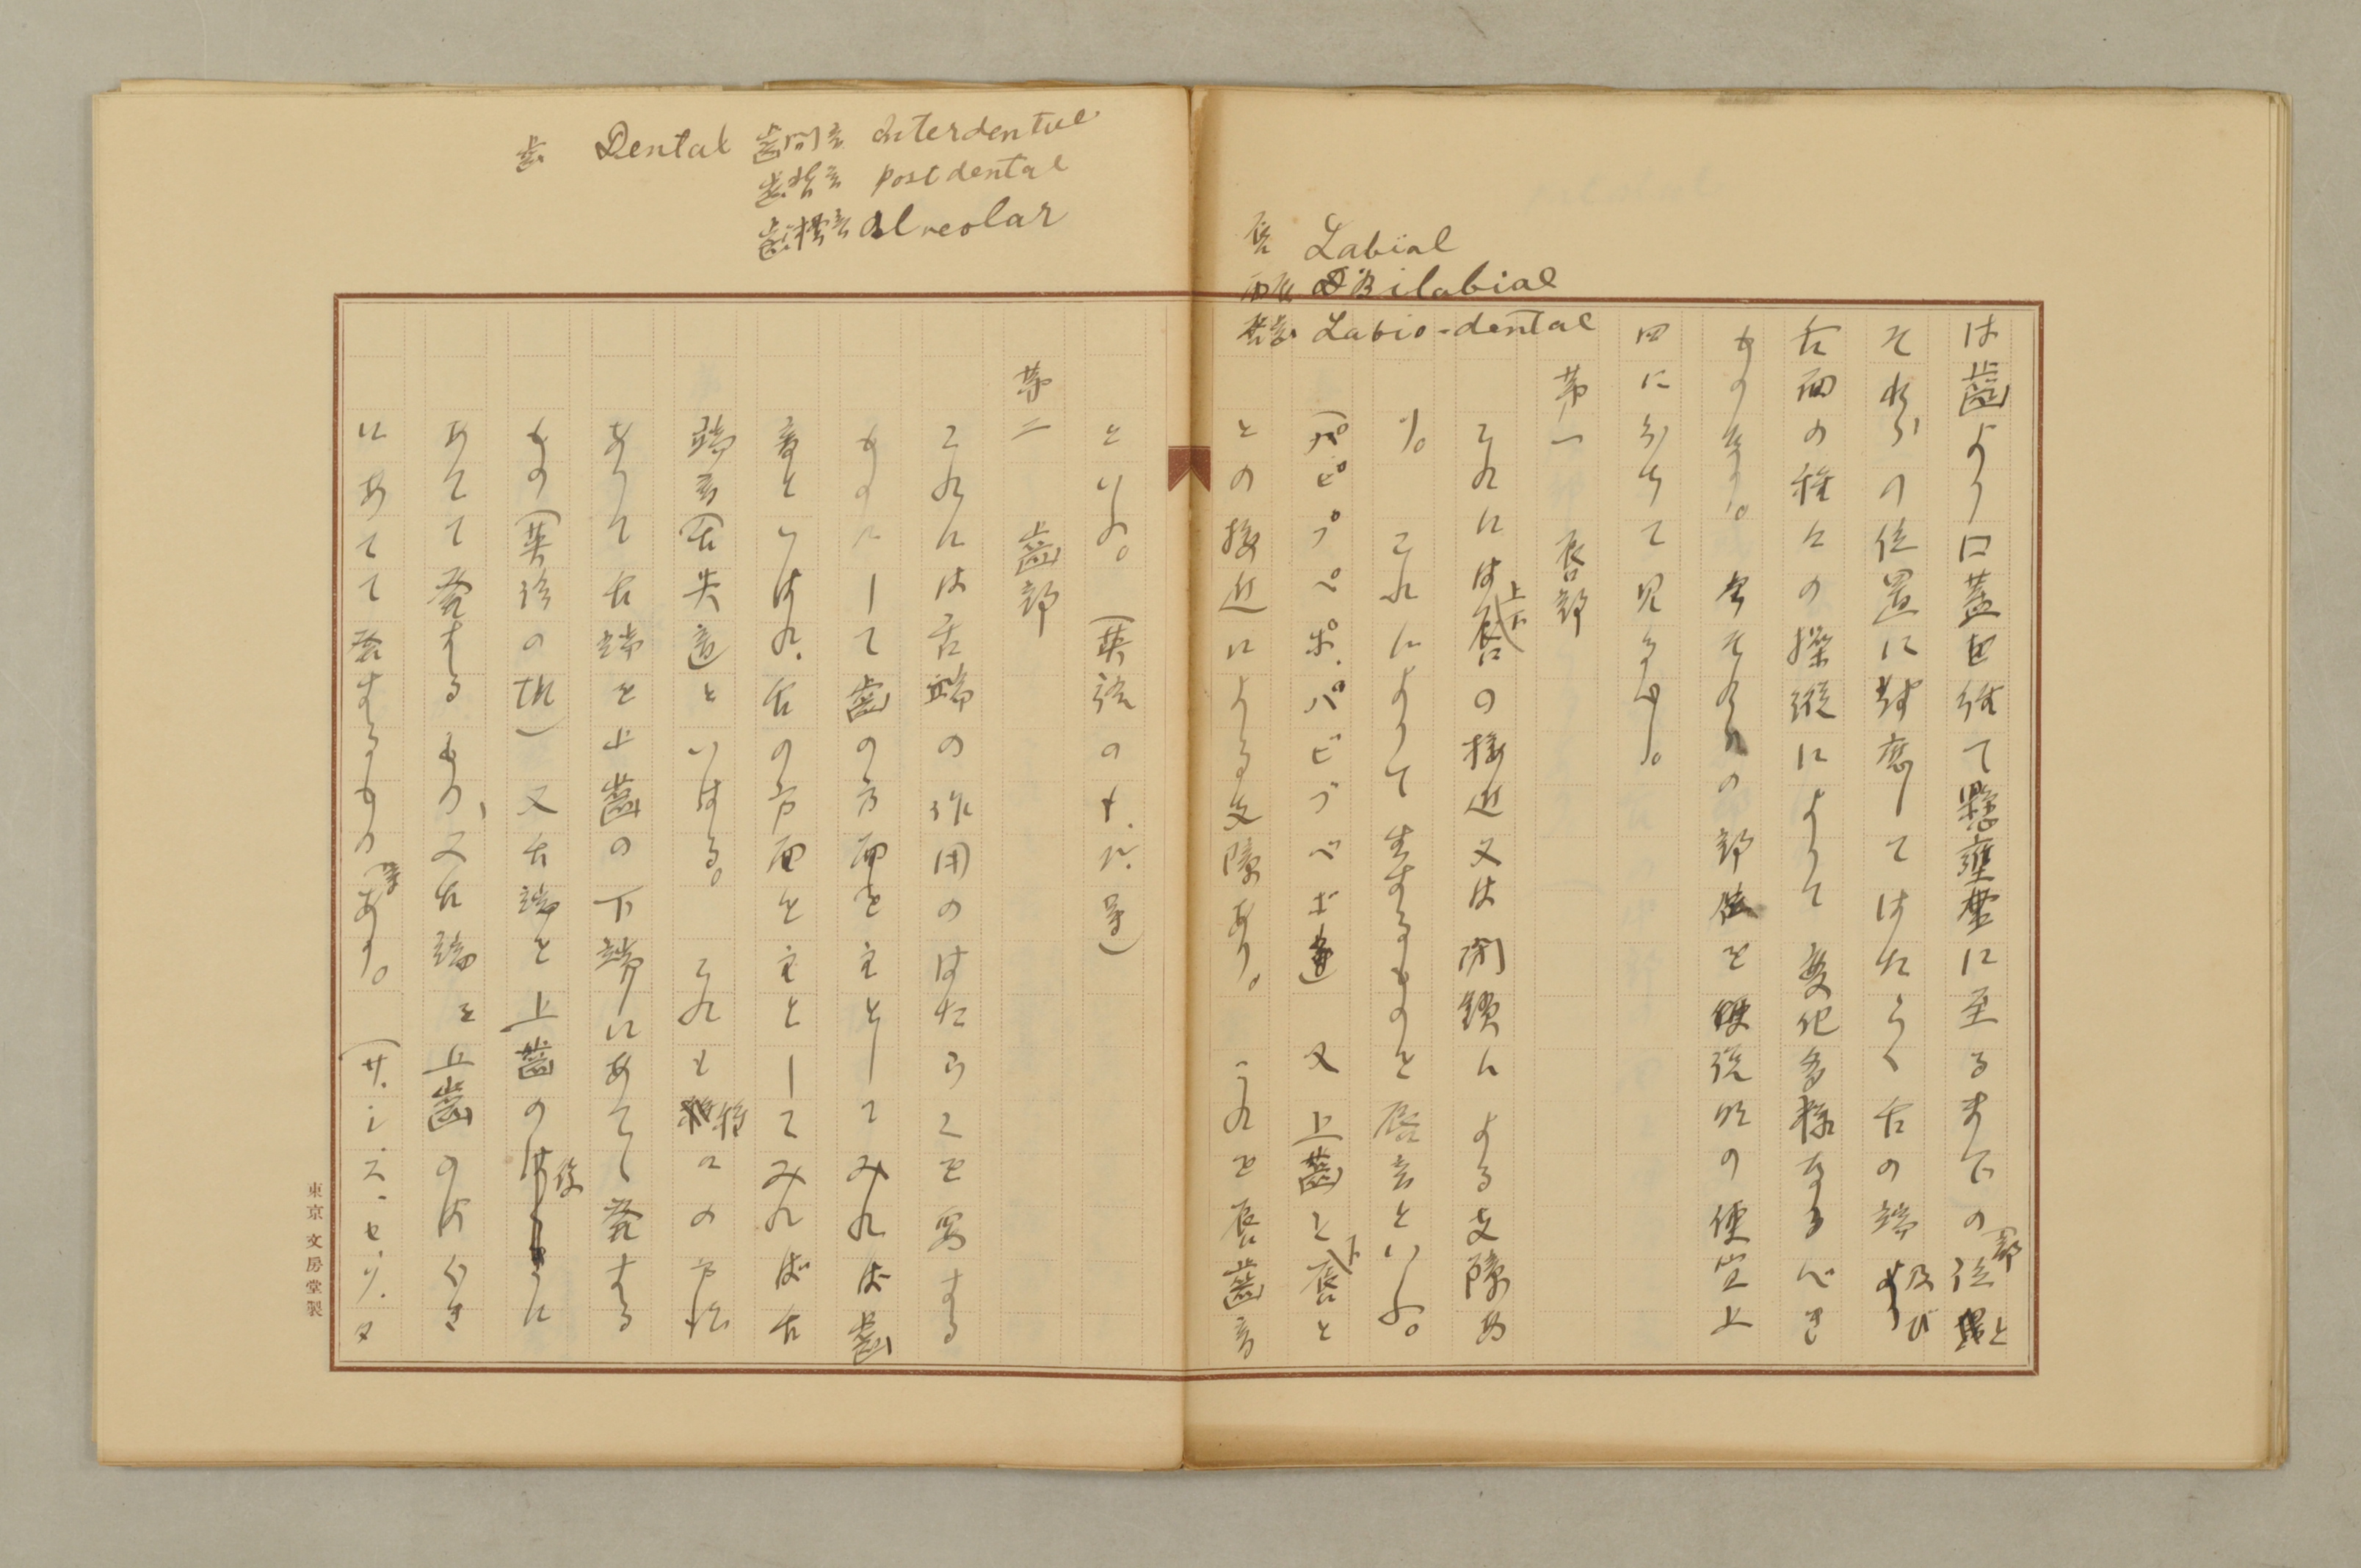 唇 Labial
両唇 Bilabial
唇歯 Labio-dental
は歯より口蓋を経て懸壅垂に至るまでの部位と
それらの位置に対応してはたらく舌の端及び
舌面の種々の操縦によりて変化多様なるべき
ものなり。今それらの部位を便宜上
四に分ちて見るべし。
第一 唇部
これには上下唇の接近又は閉鎖による支障あ
り。これによりて生ずるものを唇音といふ。
(パピプペポ、バビブベボ等) 又上歯と下唇と
との接近による支障あり。これを唇歯音
といふ。(英語のf.v.等)
第二 歯部
これには舌端の作用のはたらくを要する
ものにして歯の方面を主としてみれば歯
音といはれ、舌の方面を主としてみれば舌
端音(舌尖音)といはる。これも種々の方法
ありて舌端を上歯の下端にあてて発する
もの(英語のth)又舌端を上歯の後に
あてて発するもの、又舌端を上歯のはぐき
にあてて発するもの等あり。(サ.シ.ス.セ.ソ.タ
歯 Dental 歯間音 Interdental
歯背音 postdental
歯槽音 alveolar
東京 文房堂製